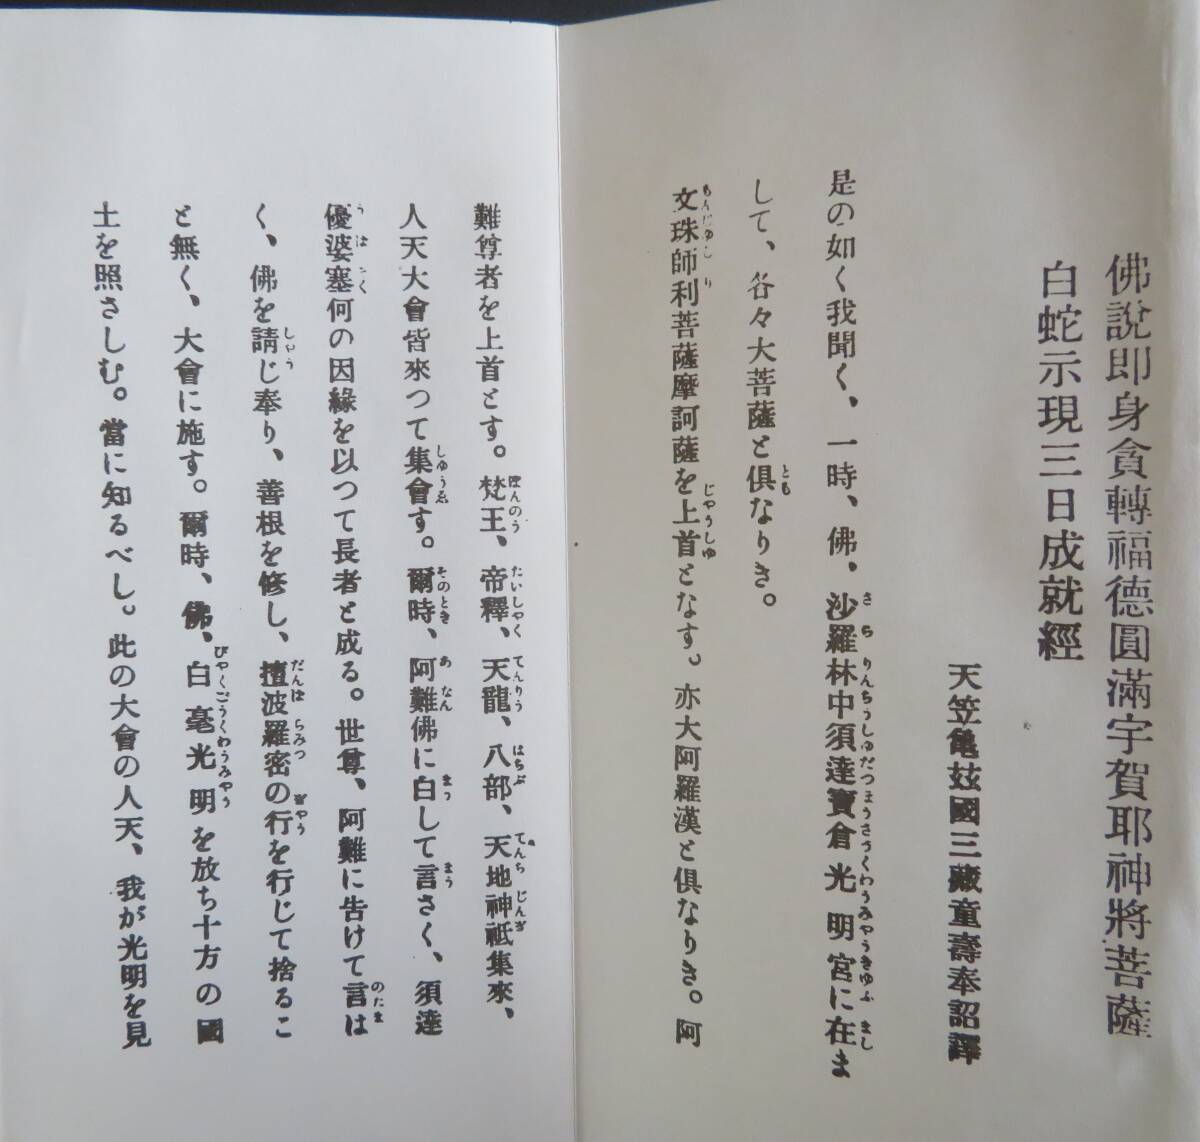 佛說即身貪轉福德圓滿宇賀耶神將菩薩
白蛇示現三日成就經
天笠龜玆國三藏童壽奉詔譯
是の如く我聞く、一時、佛、沙羅林中須達寶倉光明宮に在ま
して、各々大菩薩と俱なりき。
文珠師利菩薩摩訶薩を上首となす。亦大阿羅漢と俱なりき。阿
難尊者を上首とす。梵王、帝釋、天龍、八部、天地神祇集來、
人天大會皆來つて集會す。爾時、阿難佛に白して言さく、須達
優婆塞何の因緣を以つて長者と成る。世尊、阿難に告けて言は
く、佛を請じ奉り、善根を修し、擅波羅密の行を行じて捨るこ
と無く、大會に施す。爾時、佛、白毫光明を放ち十方の國
土を照さしむ。當に知るべし。此の大會の人天、我が光明を見